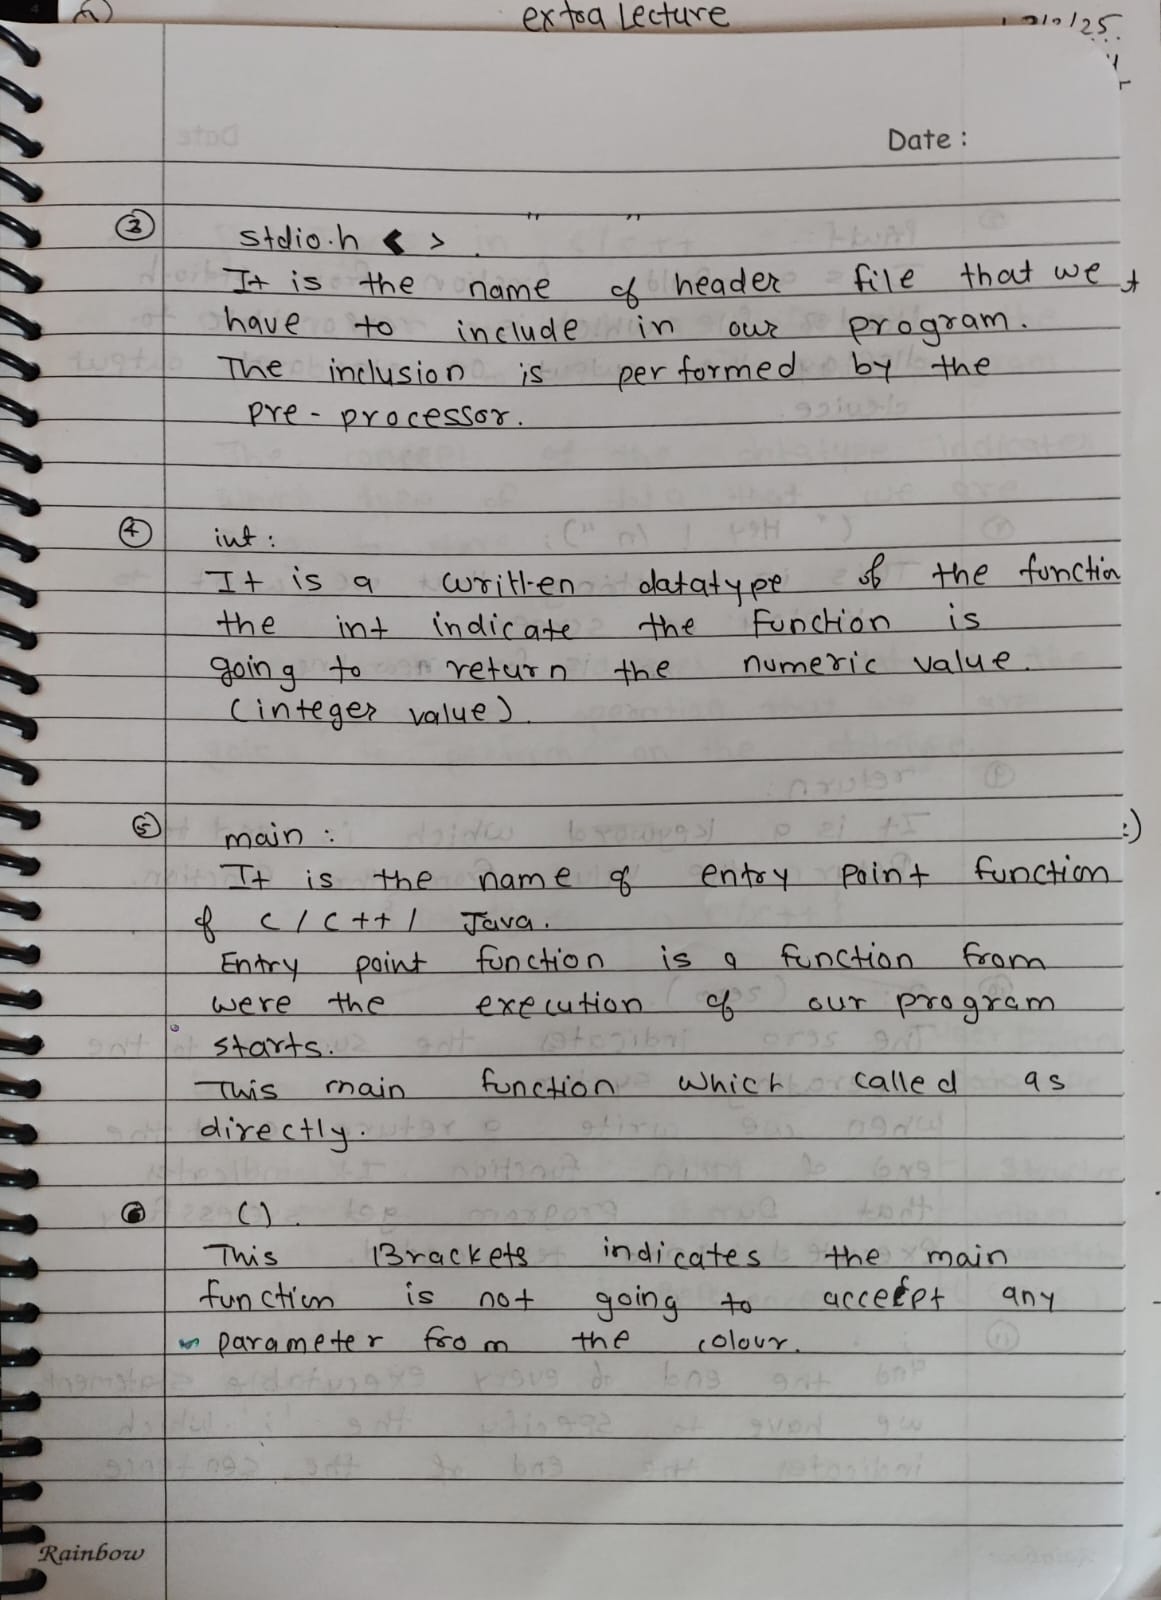 extra Lecture
Date :
③ stdio.h < > " "
It is the name of header file that we
have to include in our program.
The inclusion is performed by the
pre-processor.
④ int :
It is a written datatype of the function
the int indicate the function is
going to return the numeric value.
(integer value).
⑤ main : :)
It is the name of entry point function
of C / C++ / Java.
Entry point function is a function from
were the execution of our program
starts.
This main function which called as
directly.
⑥ ().
This Brackets indicates the main
function is not going to accept any
parameter from the colour.
Rainbow